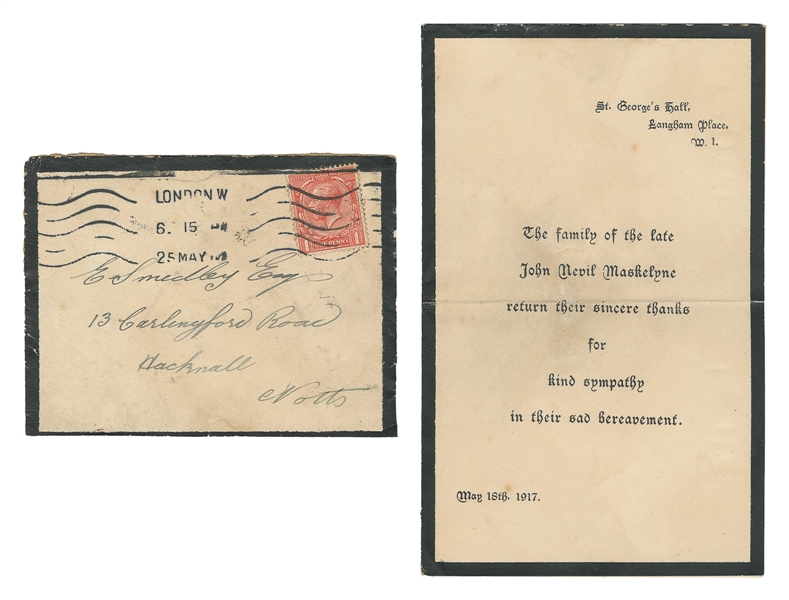 LONDON W
6. 15 PM
25 MAY
1 PENNY 1
E Smedley Esq
13 Carlingford Road
Hucknall
Notts
St. George's Hall,
Langham Place,
W. 1.
The family of the late
John Nevil Maskelyne
return their sincere thanks
for
kind sympathy
in their sad bereavement.
May 18th. 1917.